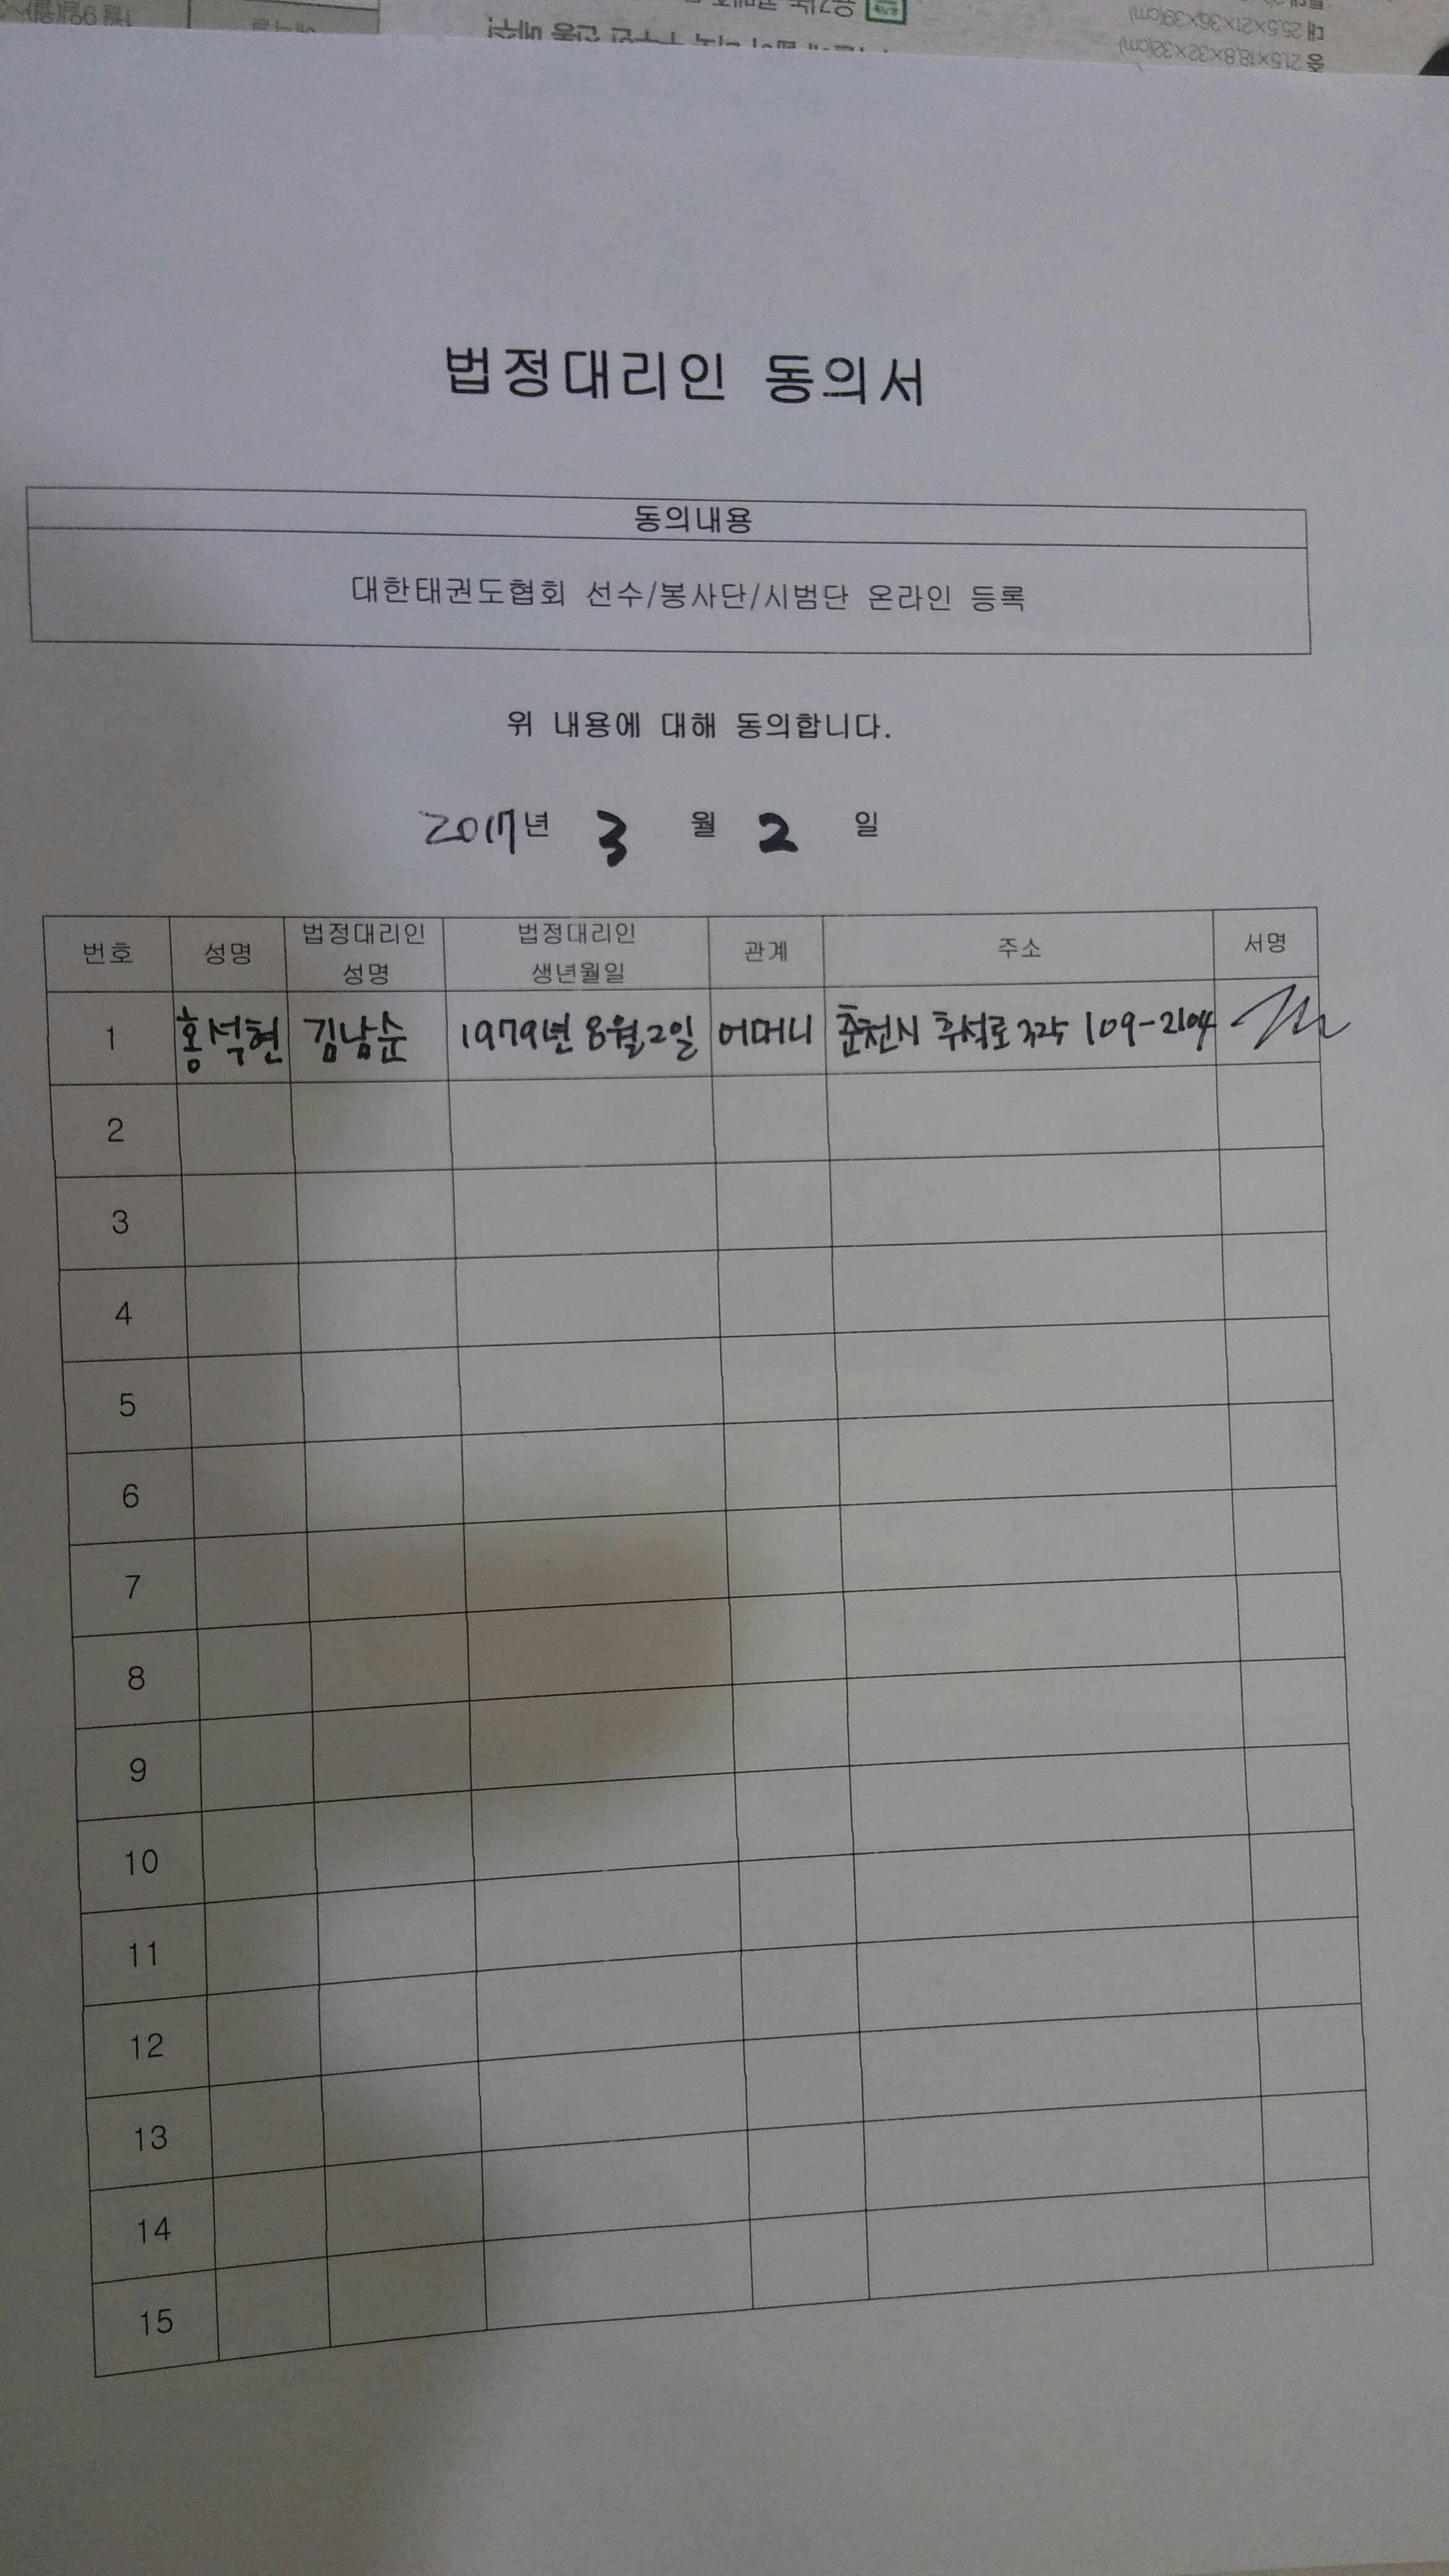 대 25.5×21×36×39(cm)
중 21.5×18.8×32×32(cm)
법정대리인 동의서
동의내용
대한태권도협회 선수/봉사단/시범단 온라인 등록
위 내용에 대해 동의합니다.
2017년 3 월 2 일
번호 성명 법정대리인 성명 법정대리인 생년월일 관계 주소 서명
1 홍석현 김남순 1979년 8월2일 어머니 춘천시 후석로 325 109-2104
2
3
4
5
6
7
8
9
10
11
12
13
14
15